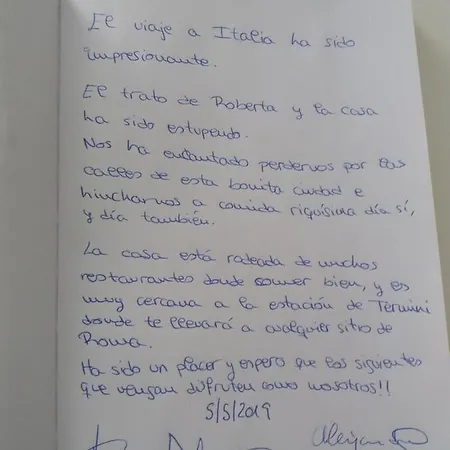 El viaje a Italia ha sido
impresionante.
El trato de Roberta y la casa
ha sido estupendo.
Nos ha encantado perdernos por las
calles de esta bonita ciudad e
hincharnos a comida riquísima día sí,
y día también.
La casa está rodeada de muchos
restaurantes donde comer bien, y es
muy cercana a la estación de Termini
donde te llevará a cualquier sitio de
Roma.
Ha sido un placer y espero que los siguientes
que vengan disfruten como nosotros!!
5/5/2019